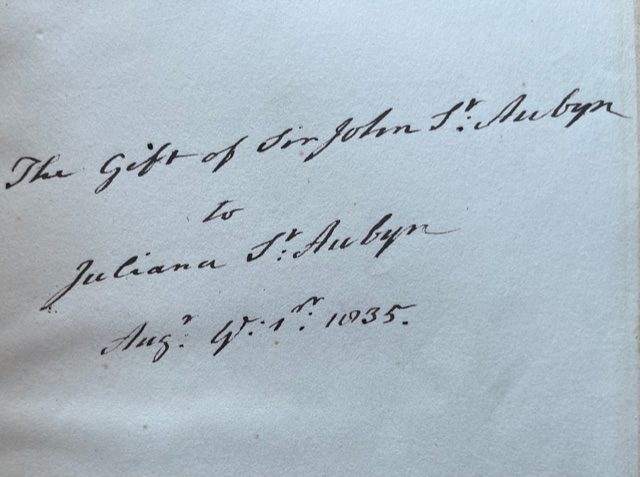 The Gift of Sir John St: Aubyn
to
Juliana St: Aubyn
Augt: 1st: 1835.